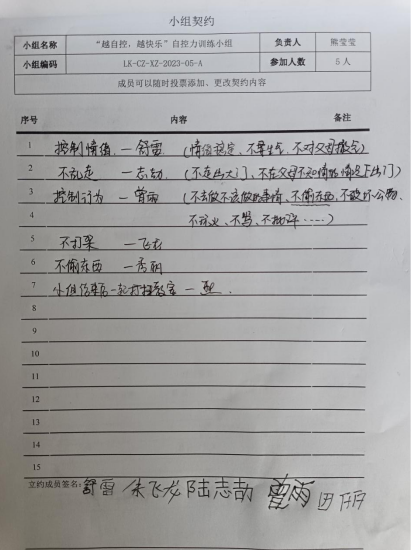 小组契约
小组名称 “越自控，越快乐”自控力训练小组 负责人 熊莹莹
小组编码 LK-CZ-XZ-2023-05-A 参加人数 5人
成员可以随时投票添加、更改契约内容
序号 内容 备注
1 控制情绪 — 舒雷 （情绪稳定、不要生气、不对父母撒气）
2 不乱走 — 志劼 （不走出大门、不在父母不知情的情况下出门）
3 控制行为 — 曾雨 （不去做不该做的事情、不偷东西、不破坏公物、
4 不玩火、不骂、不批评……）
5 不打架 — 飞龙
6 不偷东西 — 秀丽
7 小组结束后一起打扫教室 — 熊
8
9
10
11
12
13
14
15
立约成员签名：舒雷 朱飞龙 陆志劼 曾雨